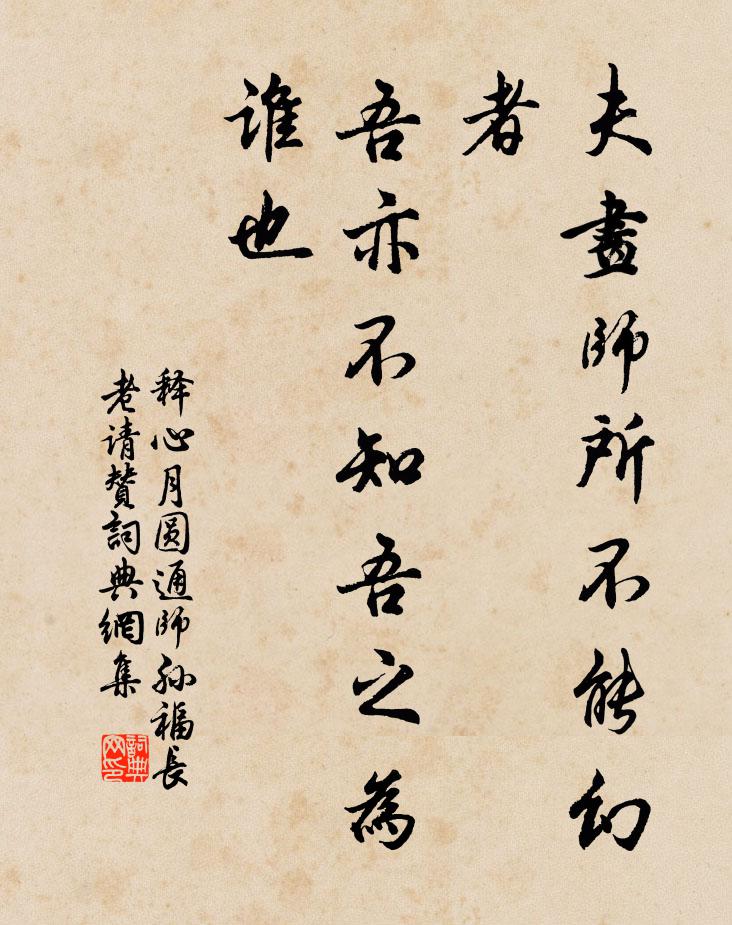 夫畫師所不能幻
者
吾亦不知吾之為
誰也
释心月圆通師孙福長
老请賛詞典網集
詞典
网印